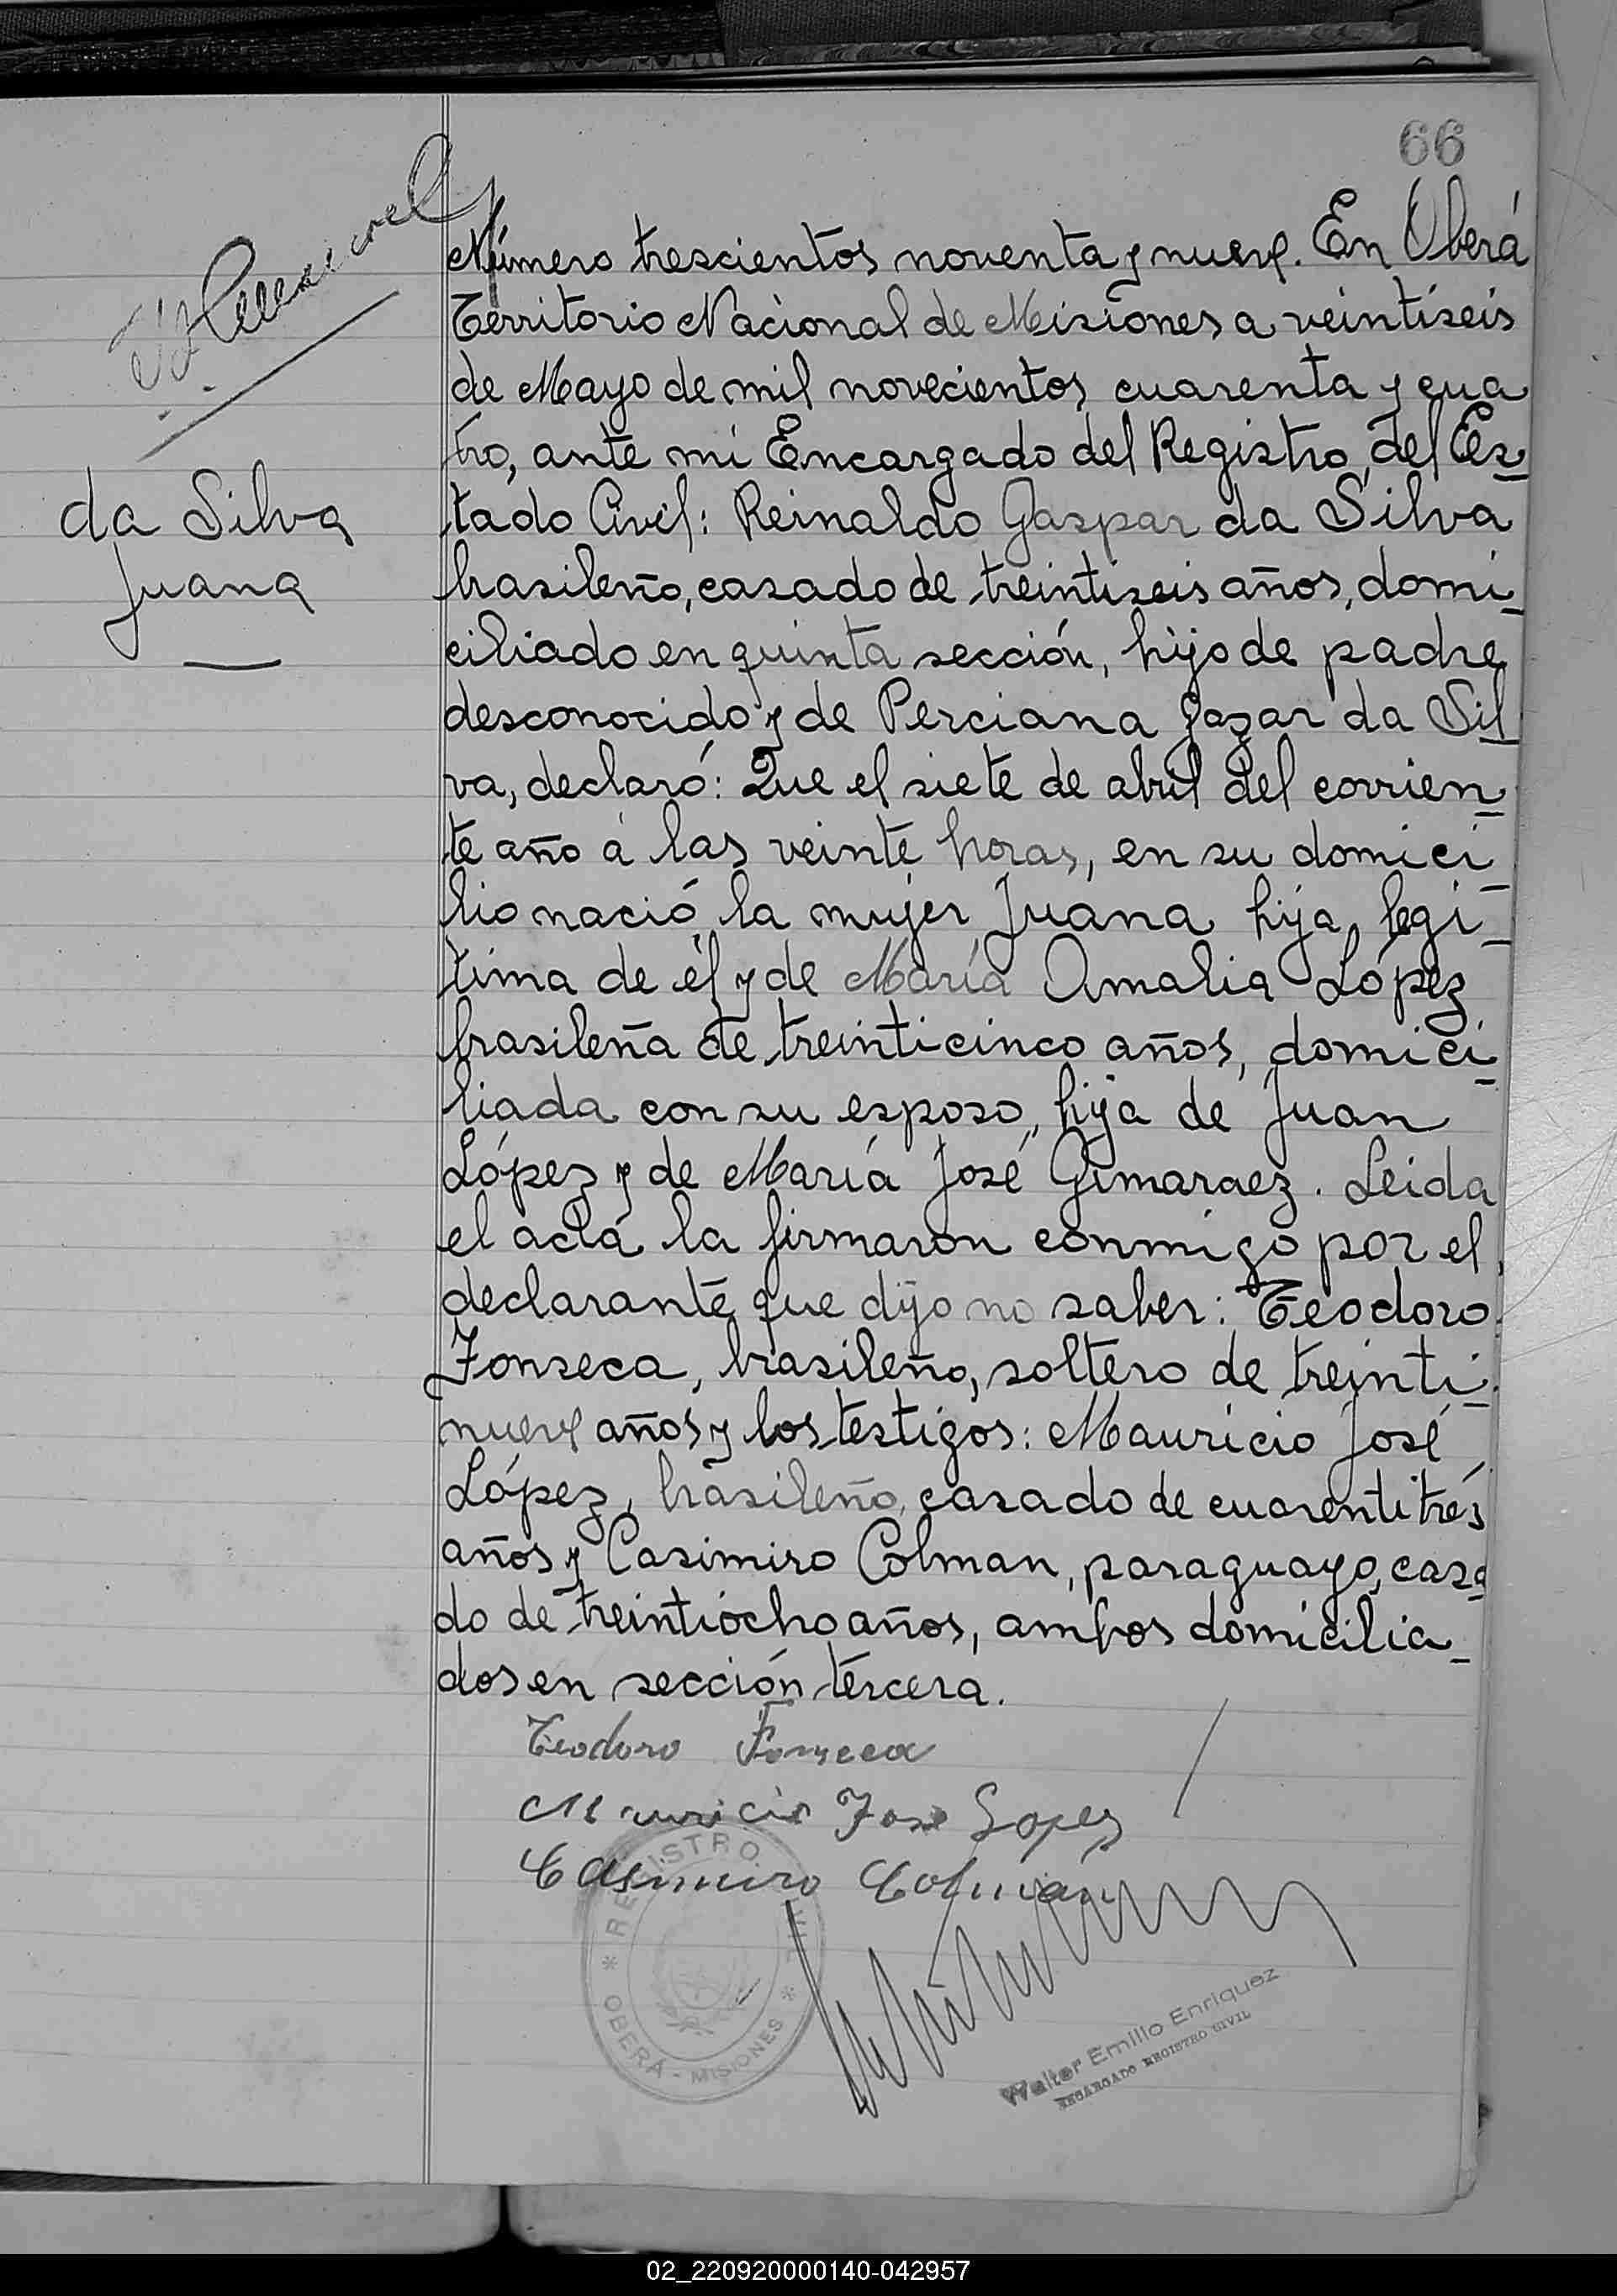 66
Número trescientos noventa y nueve. En Oberá
Territorio Nacional de Misiones a veintiseis
de Mayo de mil novecientos cuarenta y cua
tro, ante mi Encargado del Registro del Es-
tado Civil: Reinaldo Gaspar da Silva
brasileño, casado de treintiseis años, domi-
ciliado en quinta sección, hijo de padre
desconocido y de Perciana Gaspar da Sil-
va, declaró: Que el siete de abril del corrien-
te año á las veinte horas, en su domici-
lio nació la mujer Juana hija legi-
tima de él y de María Amalia López
brasileña de treinticinco años, domici-
liada con su esposo, hija de Juan
López y de María José Gimaraez. Leida
el acta la firmaron conmigo por el
declarante que dijo no saber: Teodoro
Fonseca, brasileño, soltero de treinti-
nueve años y los testigos: Mauricio José
López, brasileño, casado de cuarentitrés
años y Casimiro Colman, paraguayo, casa
do de treintiocho años, ambos domicilia-
dos en sección tercera.
da Silva
Juana
Teodoro Fonseca
Mauricio Jose Lopez
Casimiro Colmán
REGISTRO CIVIL
* OBERÁ - MISIONES *
Walter Emilio Enriquez
ENCARGADO REGISTRO CIVIL
02_220920000140-042957